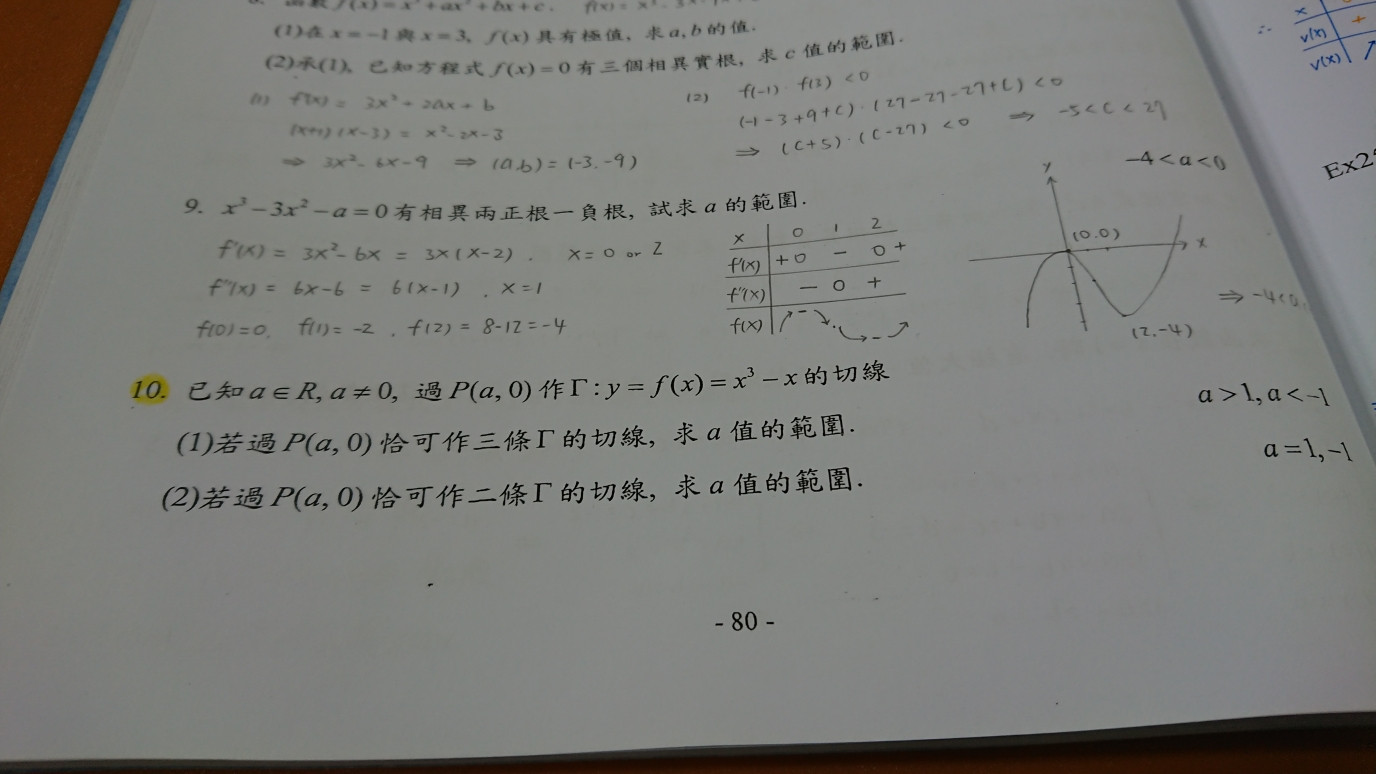 函數 f(x) = x³ + ax² + bx + c.
(1)在 x = −1 與 x = 3, f(x) 具有極值, 求 a, b 的值.
(2)承(1), 已知方程式 f(x) = 0 有三個相異實根, 求 c 值的範圍.
(1) f'(x) = 3x² + 2ax + b
(x+1)(x-3) = x²-2x-3
⇒ 3x²-6x-9 ⇒ (a,b) = (-3.-9)
(2) f(-1) · f(3) < 0
(-1-3+9+c) · (27-27-27+c) < 0
⇒ (c+5)·(c-27) < 0 ⇒ -5 < c < 27
9. x³ − 3x² − a = 0 有相異兩正根一負根, 試求 a 的範圍.
−4 < a < 0
f'(x) = 3x²-6x = 3x(x-2) . x = 0 or 2
f''(x) = 6x-6 = 6(x-1) . x = 1
f(0)=0. f(1)= -2 . f(2) = 8-12 = -4
x 0 1 2
f'(x) + 0 − 0 +
f''(x) − 0 +
f(x)
y
(0.0)
x
(2.-4)
⇒ -4<a
10. 已知 a ∈ R, a ≠ 0, 過 P(a, 0) 作 Γ : y = f(x) = x³ − x 的切線
(1)若過 P(a, 0) 恰可作三條 Γ 的切線, 求 a 值的範圍.
a > 1, a < −1
(2)若過 P(a, 0) 恰可作二條 Γ 的切線, 求 a 值的範圍.
a = 1, −1
- 80 -
∴
x
v'(x) +
v(x)
Ex2